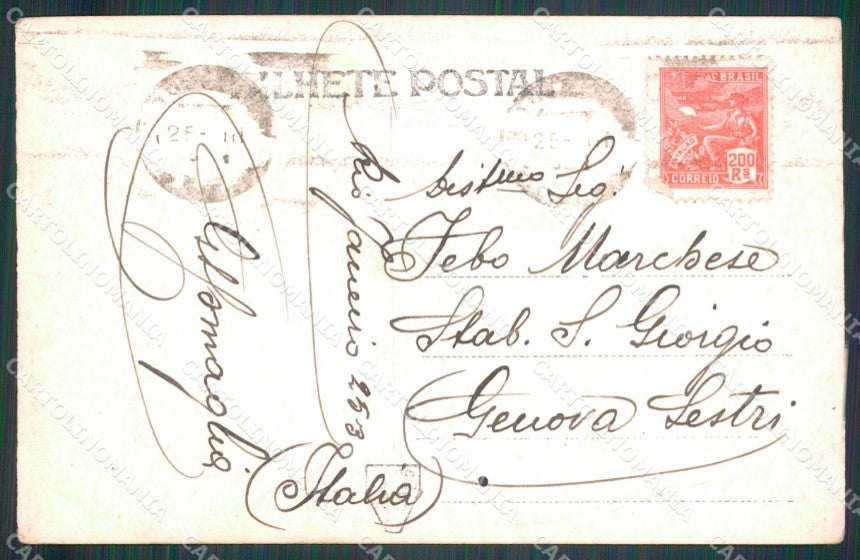 BILHETE POSTAL
BRASIL
AVIAÇÃO
200
Rs
CORREIO
25 III
25
Rio de Janeiro 25 3
Febo Marchese
Stab. S. Giorgio
Genova Sestri
(Italia)
CARTOLINOMANIA